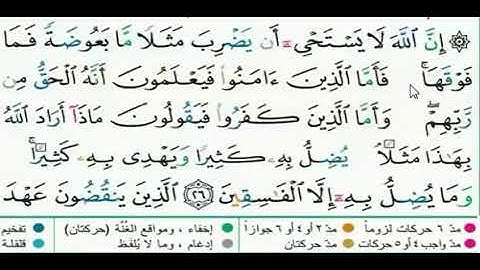 ۞ إِنَّ ٱللَّهَ لَا يَسْتَحْىِۦٓ أَن يَضْرِبَ مَثَلًا مَّا بَعُوضَةً فَمَا
فَوْقَهَا ۚ فَأَمَّا ٱلَّذِينَ ءَامَنُوا۟ فَيَعْلَمُونَ أَنَّهُ ٱلْحَقُّ مِن
رَّبِّهِمْ ۖ وَأَمَّا ٱلَّذِينَ كَفَرُوا۟ فَيَقُولُونَ مَاذَآ أَرَادَ ٱللَّهُ
بِهَٰذَا مَثَلًا ۘ يُضِلُّ بِهِۦ كَثِيرًا وَيَهْدِى بِهِۦ كَثِيرًا ۚ
وَمَا يُضِلُّ بِهِۦٓ إِلَّا ٱلْفَٰسِقِينَ ٢٦ ٱلَّذِينَ يَنقُضُونَ عَهْدَ
مدّ ٦ حركات لزوماً مدّ ٢ أو ٤ أو ٦ جوازاً إخفاء، ومواقع الغُنَّة (حركتان) تفخيم
مدّ واجب ٤ أو ٥ حركات مدّ حركتان إدغام، وما لا يُلفَظ قلقلة